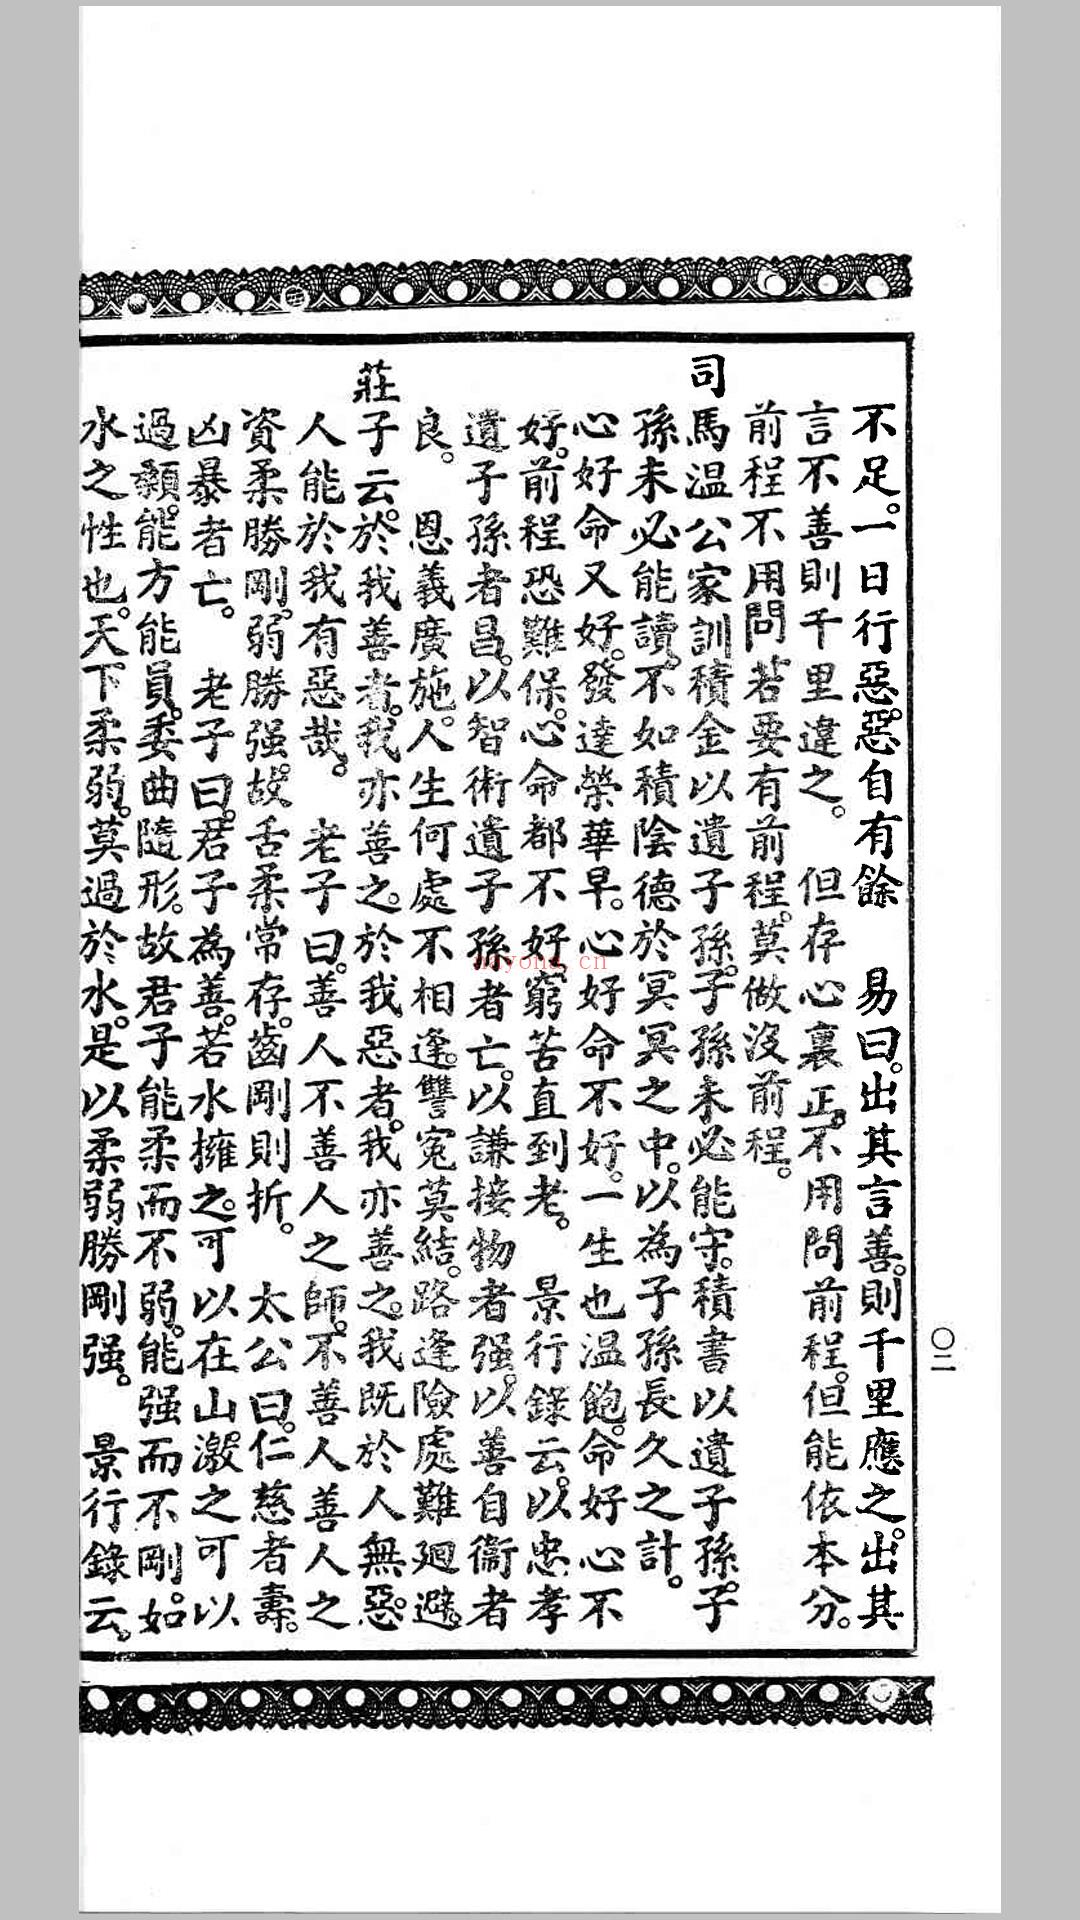 不足。一日行惡。惡自有餘　易曰。出其言善。則千里應之。出其
言不善則千里違之。　但存心裏正。不用問前程。但能依本分。
前程不用問若要有前程。莫做沒前程。
司馬溫公家訓積金以遺子孫。子孫未必能守。積書以遺子孫。子
孫未必能讀。不如積陰德於冥冥之中。以為子孫長久之計。
心好命又好。發達榮華早。心好命不好。一生也溫飽。命好心不
好。前程恐難保。心命都不好。窮苦直到老。　景行錄云。以忠孝
遺子孫者昌。以智術遺子孫者亡。以謙接物者强。以善自衞者
良。　恩義廣施。人生何處不相逢。讐冤莫結。路逢險處難廻避。
莊子云。於我善者。我亦善之。於我惡者。我亦善之。我既於人無惡。
人能於我有惡哉。　老子曰。善人不善人之師。不善人善人之
資柔勝剛。弱勝强。故舌柔常存。齒剛則折。　太公曰。仁慈者壽。
凶暴者亡。　老子曰。君子為善。若水擁之。可以在山。激之可以
過顙。能方能員。委曲隨形。故君子能柔而不弱。能强而不剛。如
水之性也。天下柔弱。莫過於水。是以柔弱勝剛强。　景行錄云。
〇二
nayona.cn